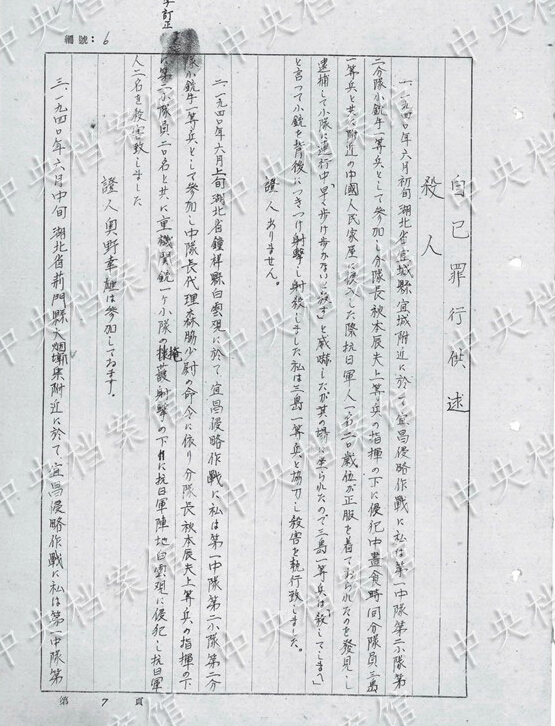 編號：6
自己罪行供述
殺人
一、一九四〇年六月初旬湖北省宜城縣宜城附近に於て宜昌侵略作戰に私は第一中隊第二小隊第
二分隊小銃手一等兵として參加し分隊長秋本辰夫上等兵の指揮の下に侵犯中晝食時同分隊員三島
一等兵と共に附近の中國人民家屋に侵入した際抗日軍人一名二〇歳位が正服を着ておられたのを發見し
逮捕して小隊に連行中「早く歩け歩かないと殺す」と威嚇したが其の場に坐られたので三島一等兵は「殺してしまへ」
と言って小銃を背後につきつけ射擊し射殺しました私は三島一等兵と協力し殺害を執行致しました。
證人ありません。
二、一九四〇年六月上旬湖北省鐘祥縣白雲現に於て宜昌侵略作戰に私は第一中隊第二小隊第二分
隊小銃手一等兵として參加し中隊長代理森脇少尉の命令に依り分隊長秋本辰夫上等兵の指揮の下
に第二小隊員二〇名と共に重機關銃一ケ小隊の掩護射擊の下に抗日軍陣地白雲現に侵犯し抗日軍
人二名を殺害致しました
證人奧野幸雄は參加しております。
三、一九四〇年六月中旬湖北省荊門縣大烟墩集附近に於て宜昌侵略作戰に私は第一中隊第
第 7 頁
中央档案馆